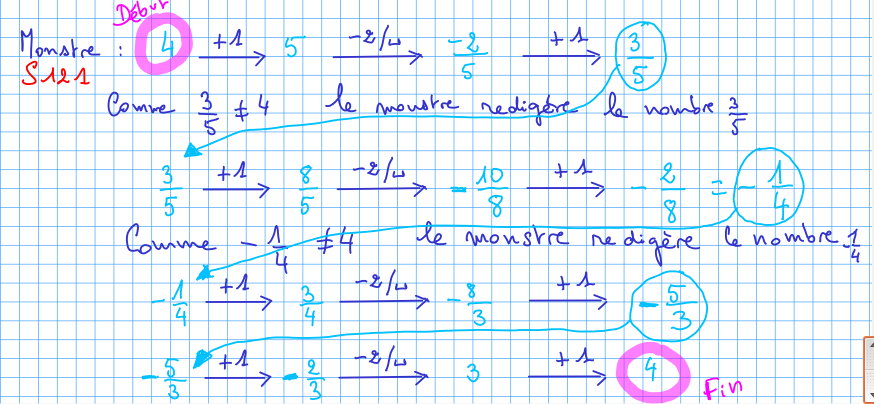 Début
Monstre : 4 +1 → 5 -2/u → -2/5 +1 → 3/5
S121
Comme 3/5 ≠ 4 le monstre redigère le nombre 3/5
3/5 +1 → 8/5 -2/u → -10/8 +1 → -2/8 = -1/4
Comme -1/4 ≠ 4 le monstre redigère le nombre -1/4
-1/4 +1 → 3/4 -2/u → -8/3 +1 → -5/3
-5/3 +1 → -2/3 -2/u → 3 +1 → 4
Fin